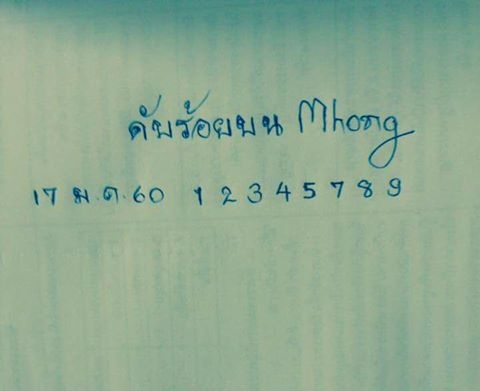 ดับร้อยบน Mhong
17 ม.ค.60 1 2 3 4 5 7 8 9